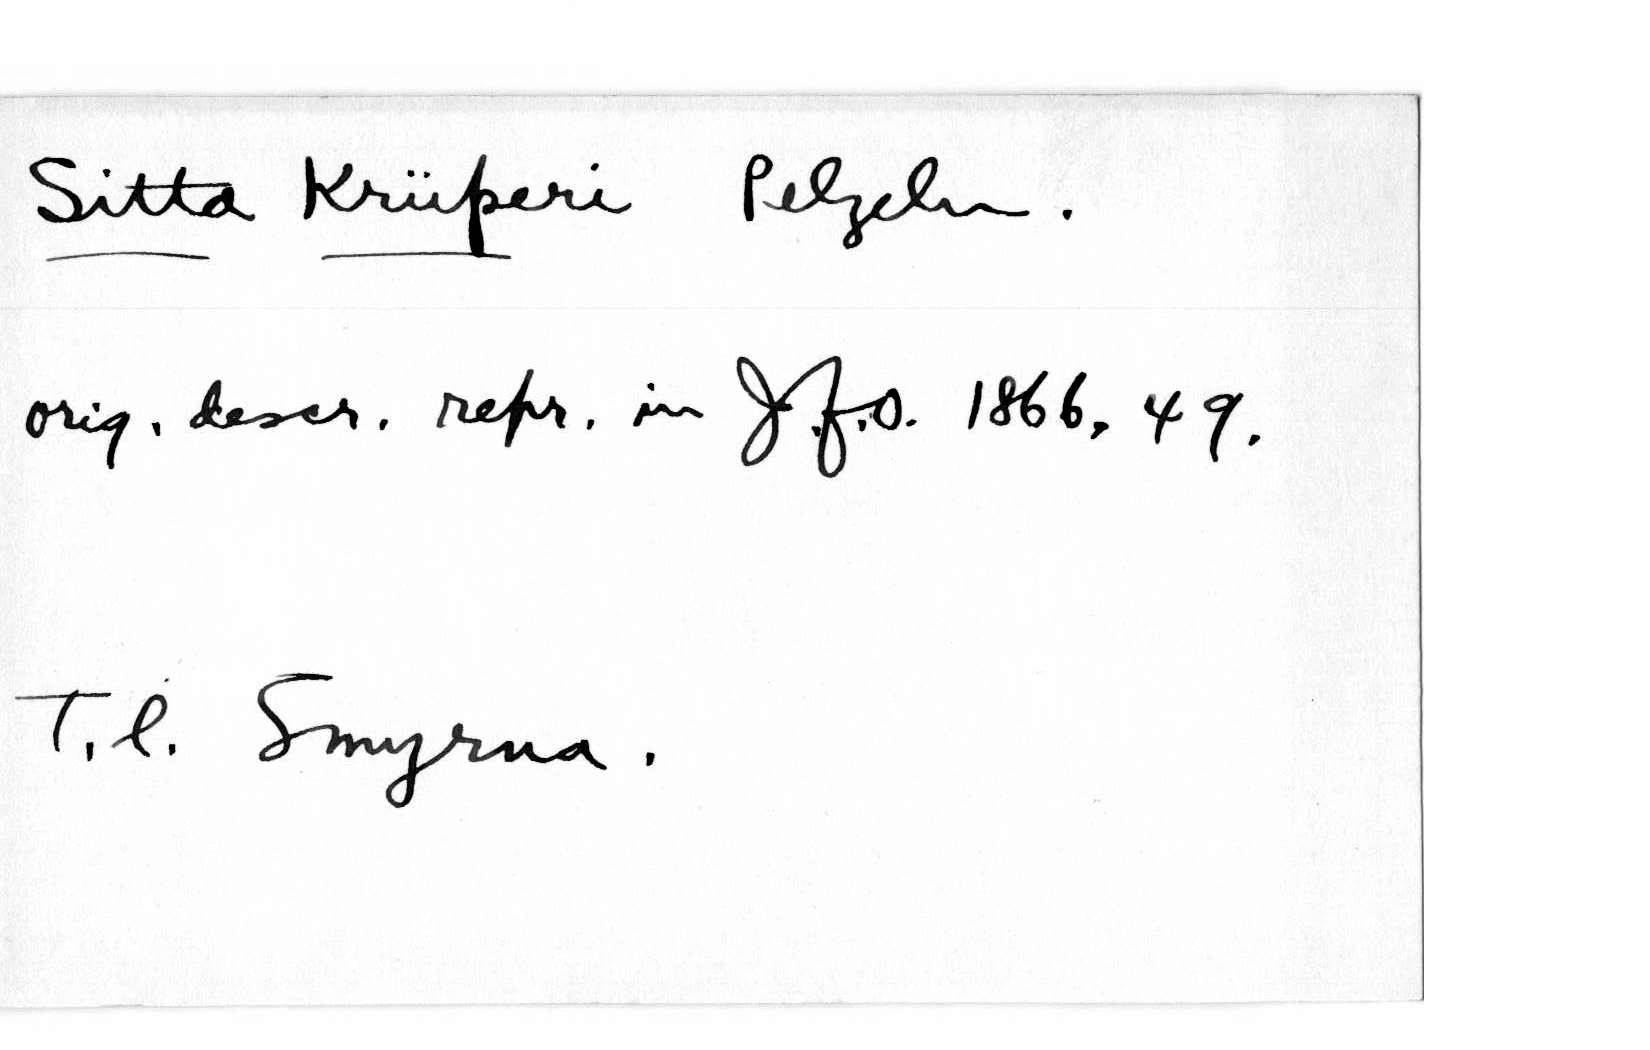 Sitta Krüperi Pelzeln.
orig. descr. repr. in J.f.O. 1866, 49.
T.l. Smyrna.